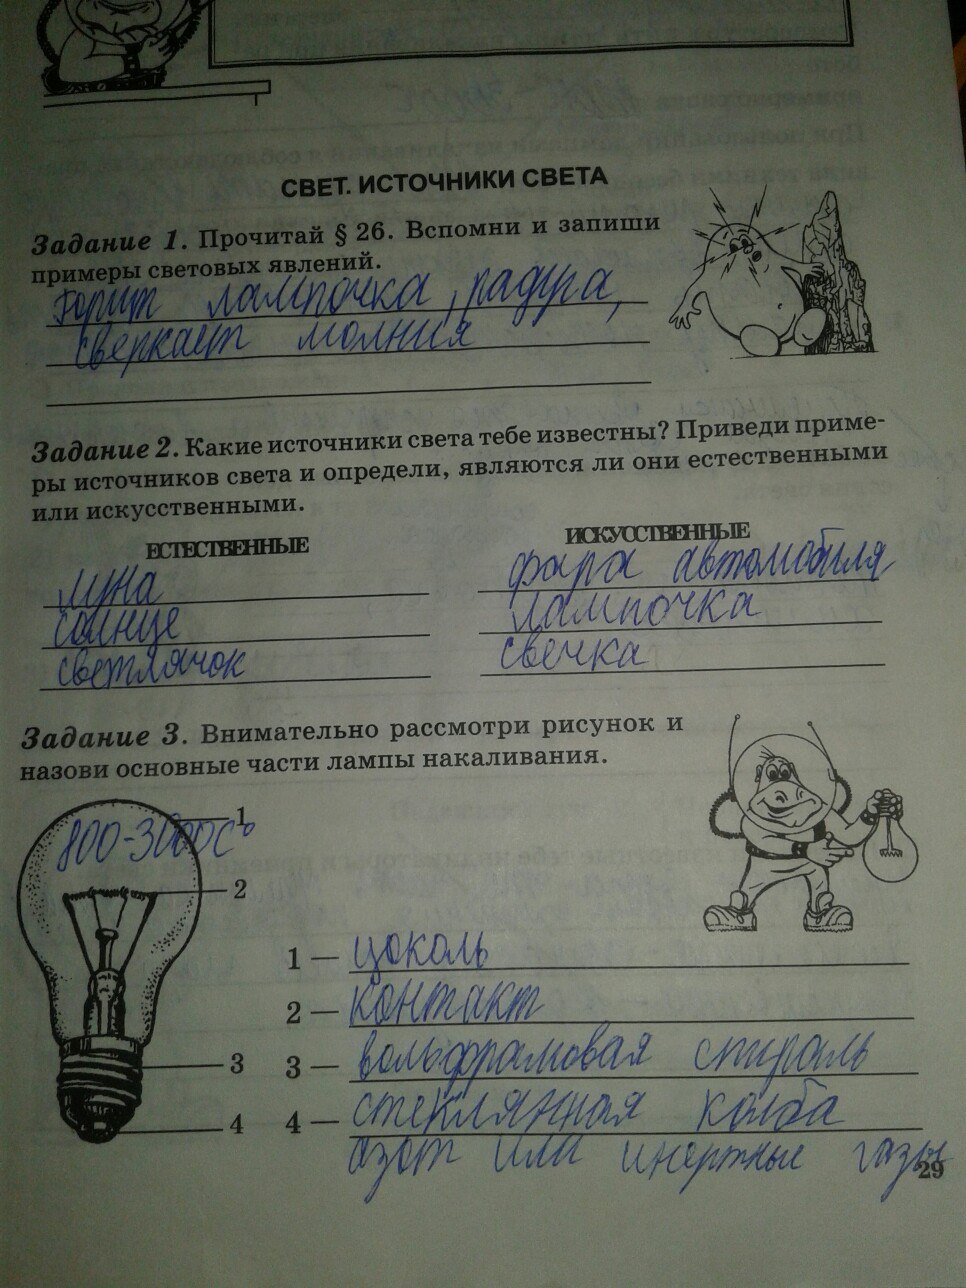 СВЕТ. ИСТОЧНИКИ СВЕТА
Задание 1. Прочитай § 26. Вспомни и запиши
примеры световых явлений.
Горит лампочка, радуга,
сверкает молния
Задание 2. Какие источники света тебе известны? Приведи приме-
ры источников света и определи, являются ли они естественными
или искусственными.
ЕСТЕСТВЕННЫЕ
ИСКУССТВЕННЫЕ
луна
фара автомобиля
солнце
лампочка
светлячок
свечка
Задание 3. Внимательно рассмотри рисунок и
назови основные части лампы накаливания.
1
800-3000С°
2
1 — цоколь
2 — контакт
3
3 — вольфрамовая спираль
4
4 — стеклянная колба
азот или инертные газы
29